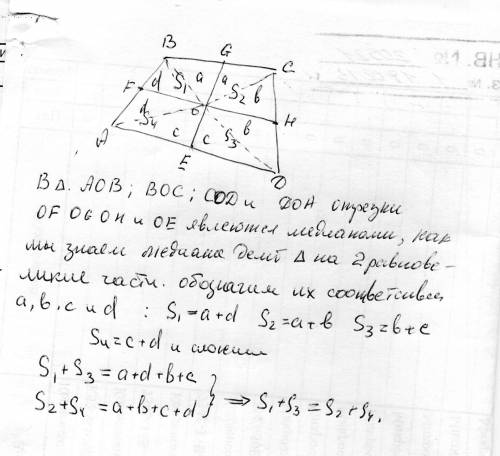 НВ. №
B G C
d S₁ a a S₂ b
F O H
d S₄ c c S₃ b
A E D
В Δ. AOB; BOC; COD и DOA отрезки
OF OG OH и OE являются медианами, как
мы знаем медиана делит Δ на 2 равнове-
ликие части. обозначим их соответственно
a, b, c и d : S₁=a+d S₂=a+b S₃=b+c
S₄=c+d и сложим
S₁+S₃=a+d+b+c
S₂+S₄=a+b+c+d } ⇒ S₁+S₃=S₂+S₄.